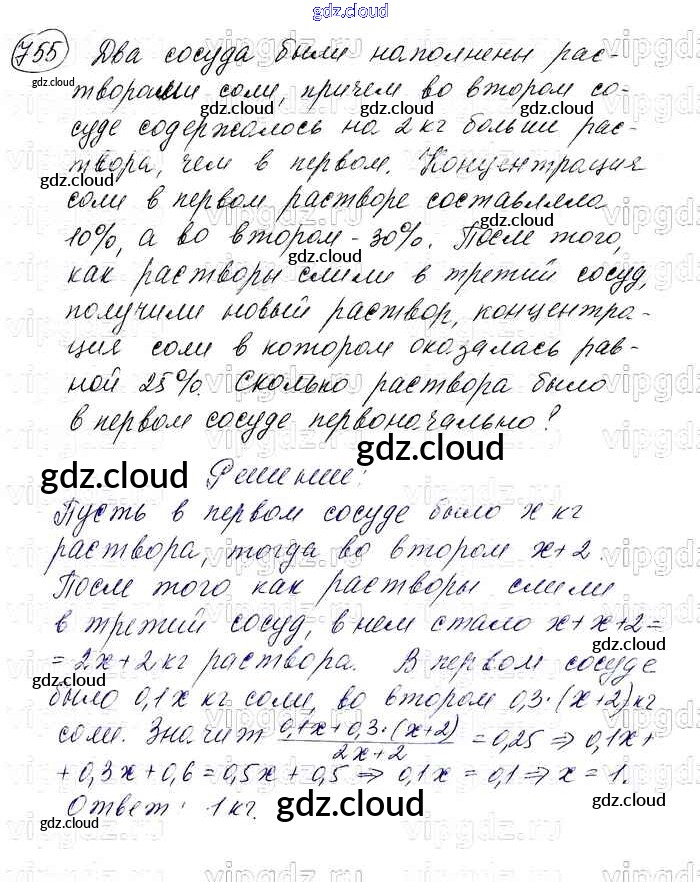 gdz.cloud
755 Два сосуда были наполнены рас-
творами соли, причем во втором со-
суде содержалось на 2 кг больше рас-
твора, чем в первом. Концентрация
соли в первом растворе составляла
10%, а во втором - 30%. После того,
как растворы слили в третий сосуд,
получили новый раствор, концентра-
ция соли в котором оказалась рав-
ной 25%. Сколько раствора было
в первом сосуде первоначально?
gdz.cloud
gdz.cloud Решение:
Пусть в первом сосуде было x кг
раствора, тогда во втором x+2.
После того как растворы слили
в третий сосуд, в нем стало x+x+2=
=2x+2 кг раствора. В первом сосуде
было 0,1x кг соли, во втором 0,3·(x+2) кг
соли. Значит (0,1x+0,3·(x+2))/(2x+2) = 0,25 ⇒ 0,1x+
+0,3x+0,6=0,5x+0,5 ⇒ 0,1x=0,1 ⇒ x=1.
Ответ: 1 кг.
gdz.cloud